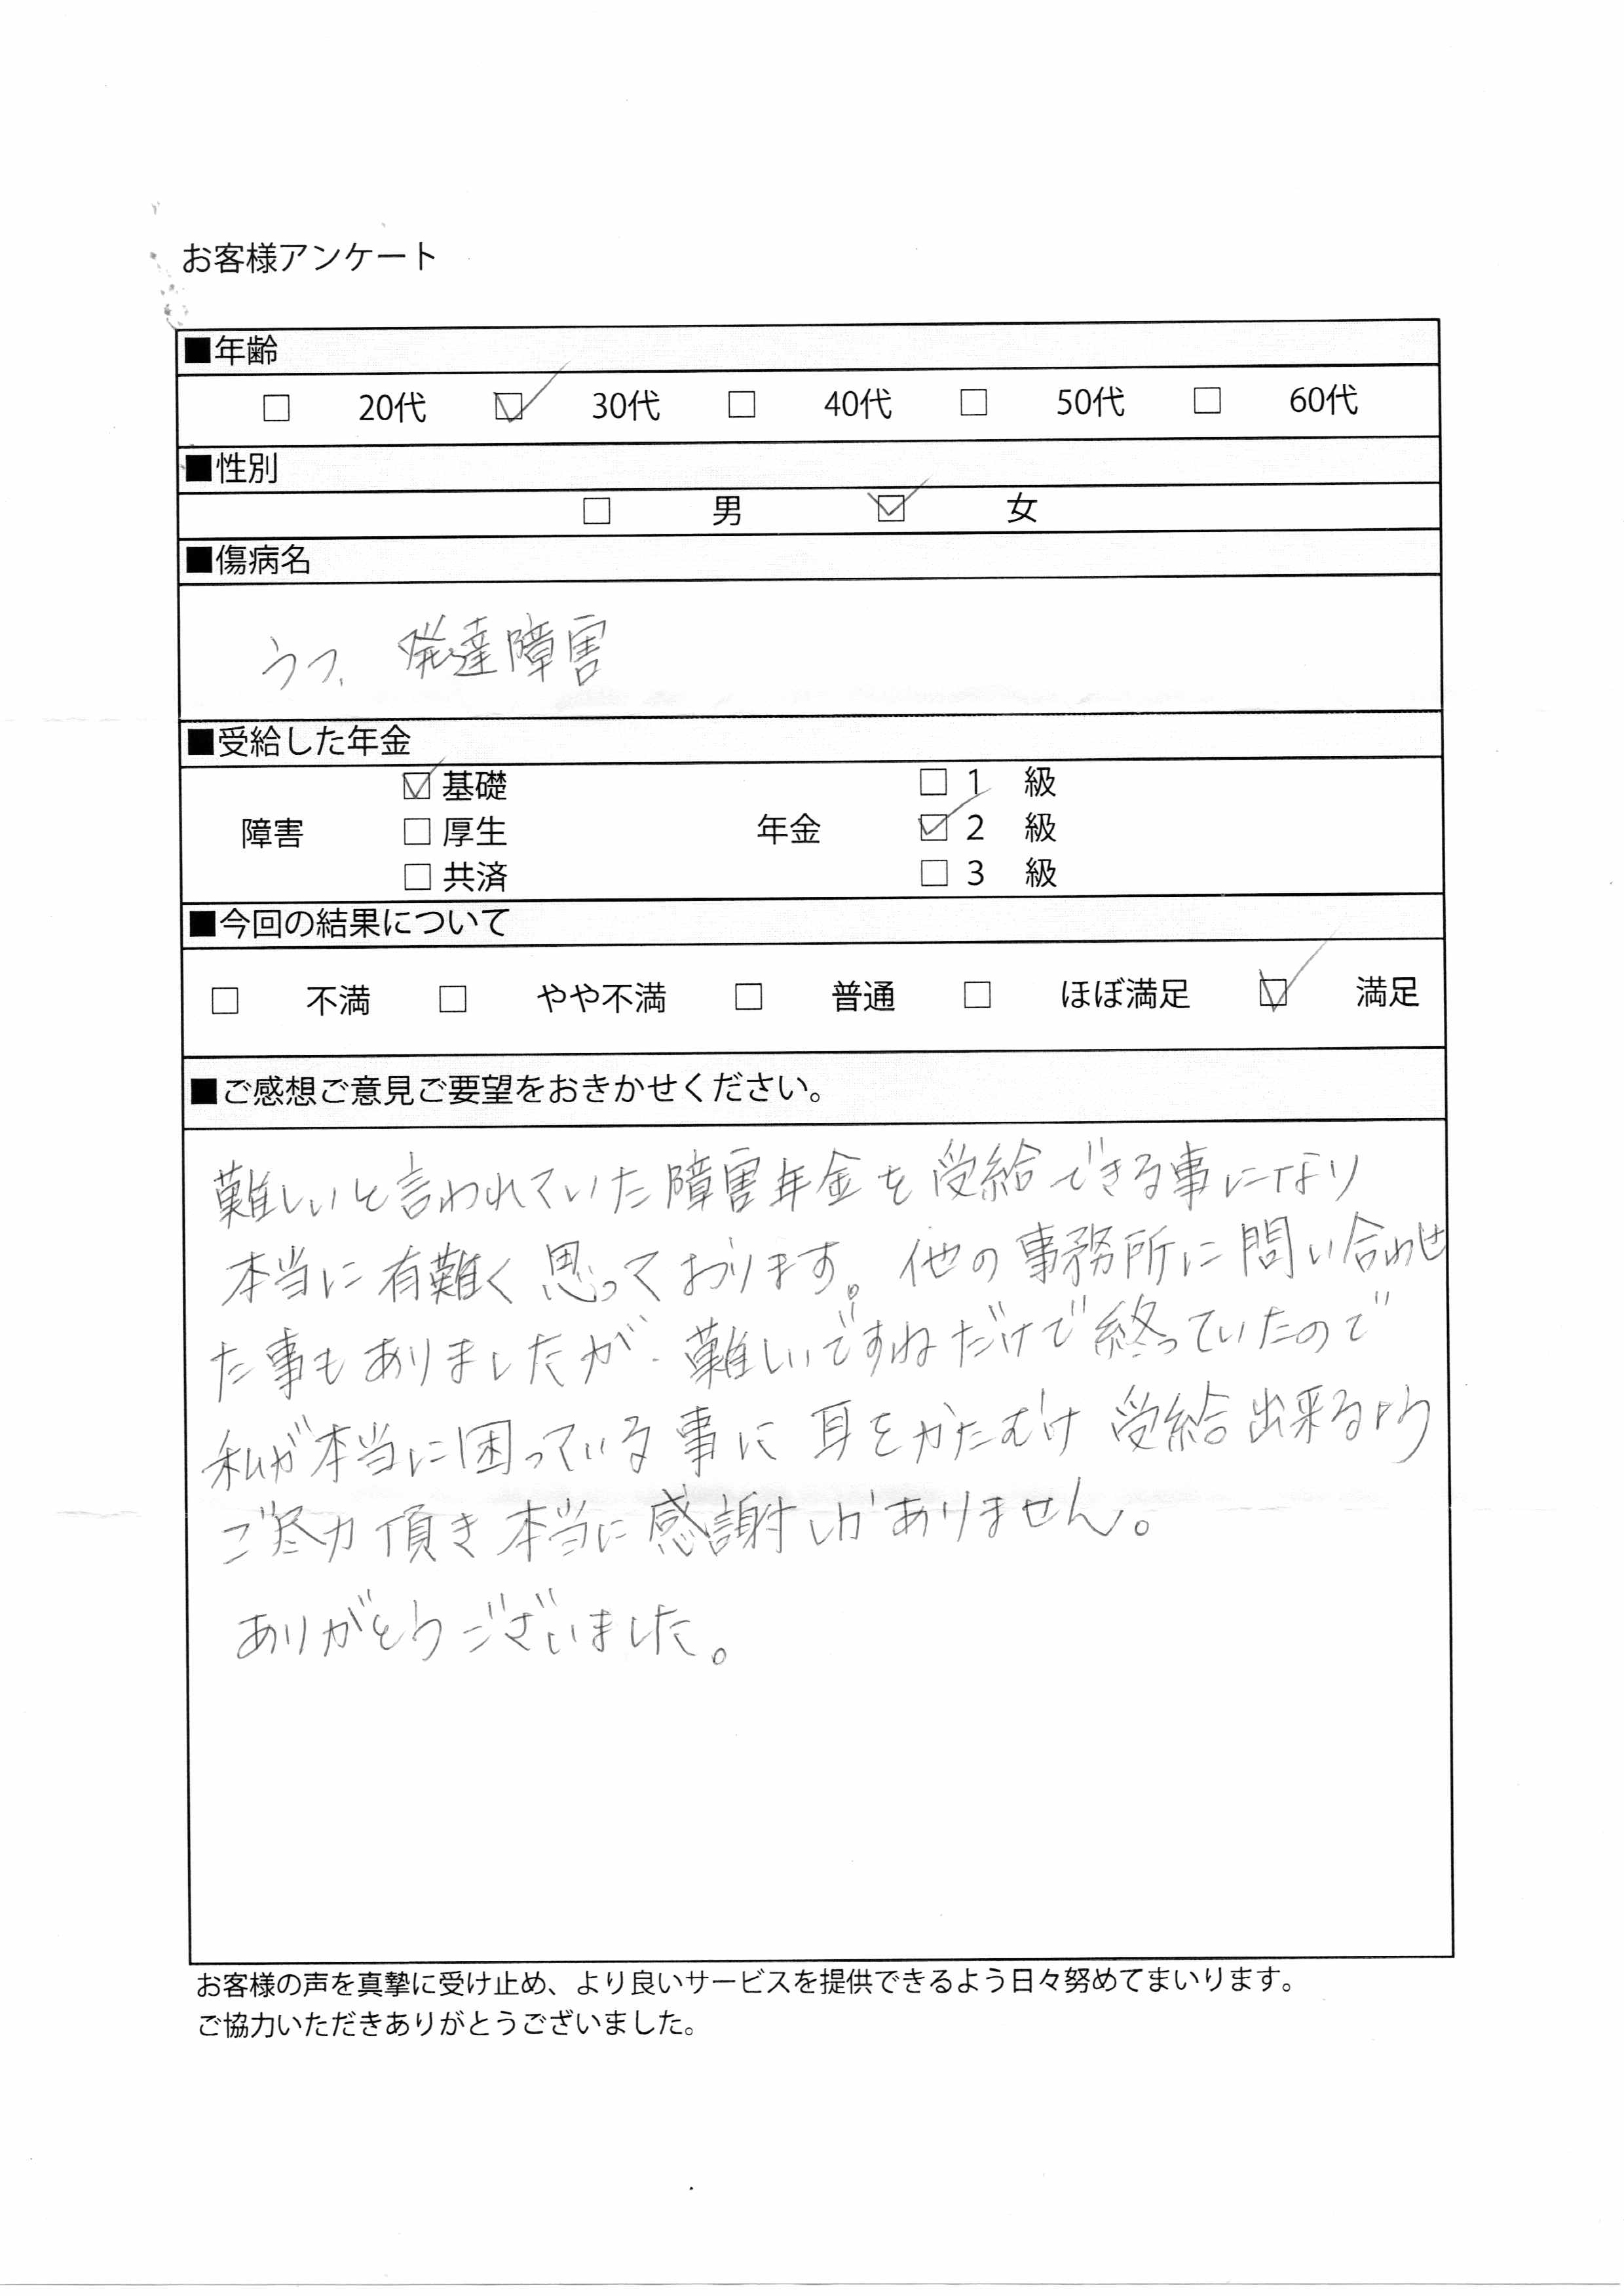 お客様アンケート
■年齢
□ 20代 ☑ 30代 □ 40代 □ 50代 □ 60代
■性別
□ 男 ☑ 女
■傷病名
うつ、発達障害
■受給した年金
☑ 基礎 □ 1 級
障害 □ 厚生 年金 ☑ 2 級
□ 共済 □ 3 級
■今回の結果について
□ 不満 □ やや不満 □ 普通 □ ほぼ満足 ☑ 満足
■ご感想ご意見ご要望をおきかせください。
難しいと言われていた障害年金を受給できる事になり
本当に有難く思っております。他の事務所に問い合わせ
た事もありましたが、難しいですねだけで終っていたので
私が本当に困っている事に耳をかたむけ受給出来るよう
ご尽力頂き本当に感謝しかありません。
ありがとうございました。
お客様の声を真摯に受け止め、より良いサービスを提供できるよう日々努めてまいります。
ご協力いただきありがとうございました。